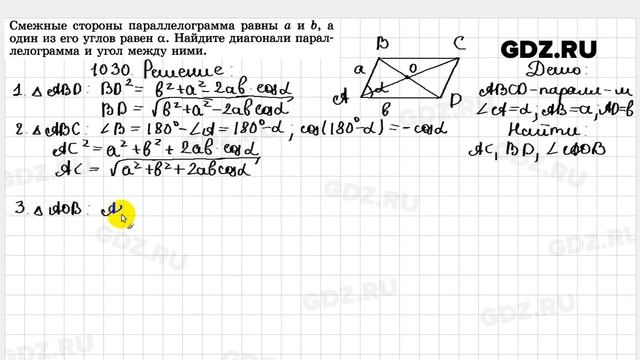 Смежные стороны параллелограмма равны a и b, а
один из его углов равен α. Найдите диагонали парал-
лелограмма и угол между ними.
GDZ.RU
1030. Решение:
1. △ ABD: BD² = b²+a²-2ab·cosα
BD = √b²+a²-2ab cosα
2. △ ABC: ∠B = 180°-∠A = 180°-α; cos(180°-α) = -cosα
AC² = a²+b²+2ab·cosα
AC = √a²+b²+2ab cosα
3. △ AOB: A
B C
a O
A α D
b
Дано:
ABCD - паралл-м
∠A=α; AB=a; AD=b
Найти:
AC, BD, ∠AOB
GDZ.RU
GDZ.RU
GDZ.RU
GDZ.RU